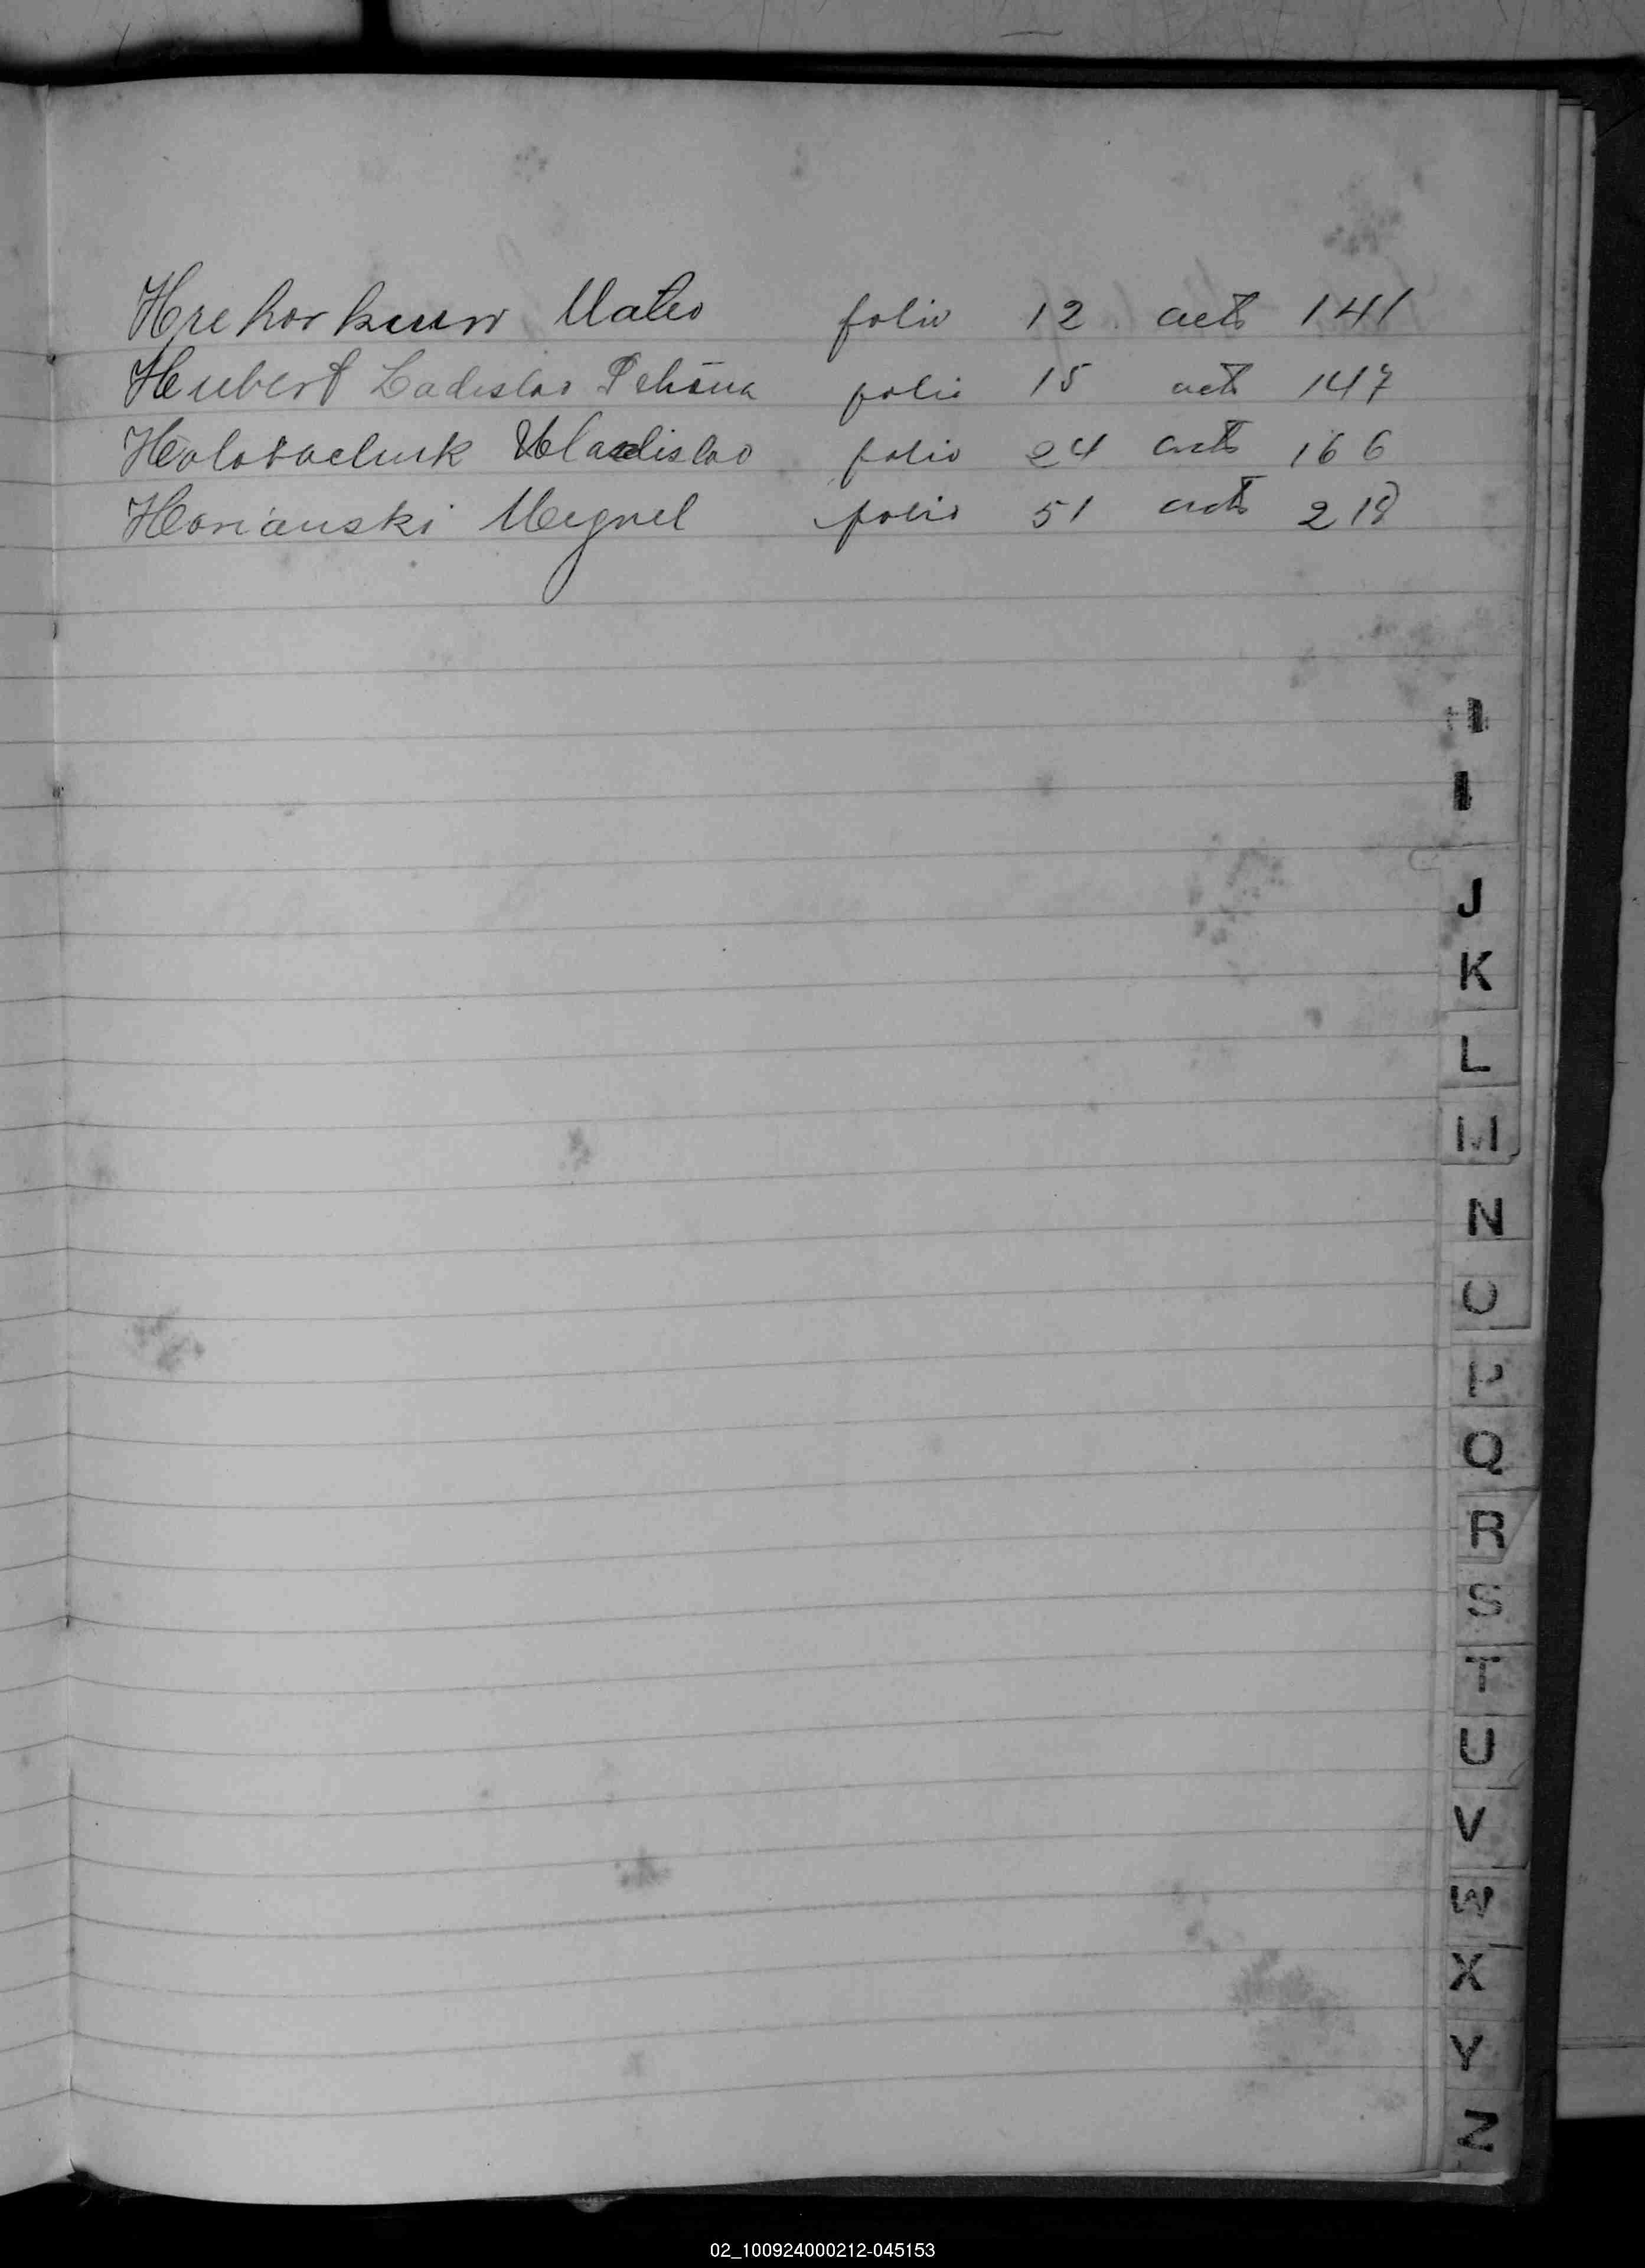 Hrehorkuw Mateo folio 12 acta 141
Hubert Ladislao folio 15 acta 147
Holovachuk Vladislao folio 24 acta 166
Horianski Miguel folio 51 acta 218
I
J
K
L
M
N
O
P
Q
R
S
T
U
V
W
X
Y
Z
02_100924000212-045153